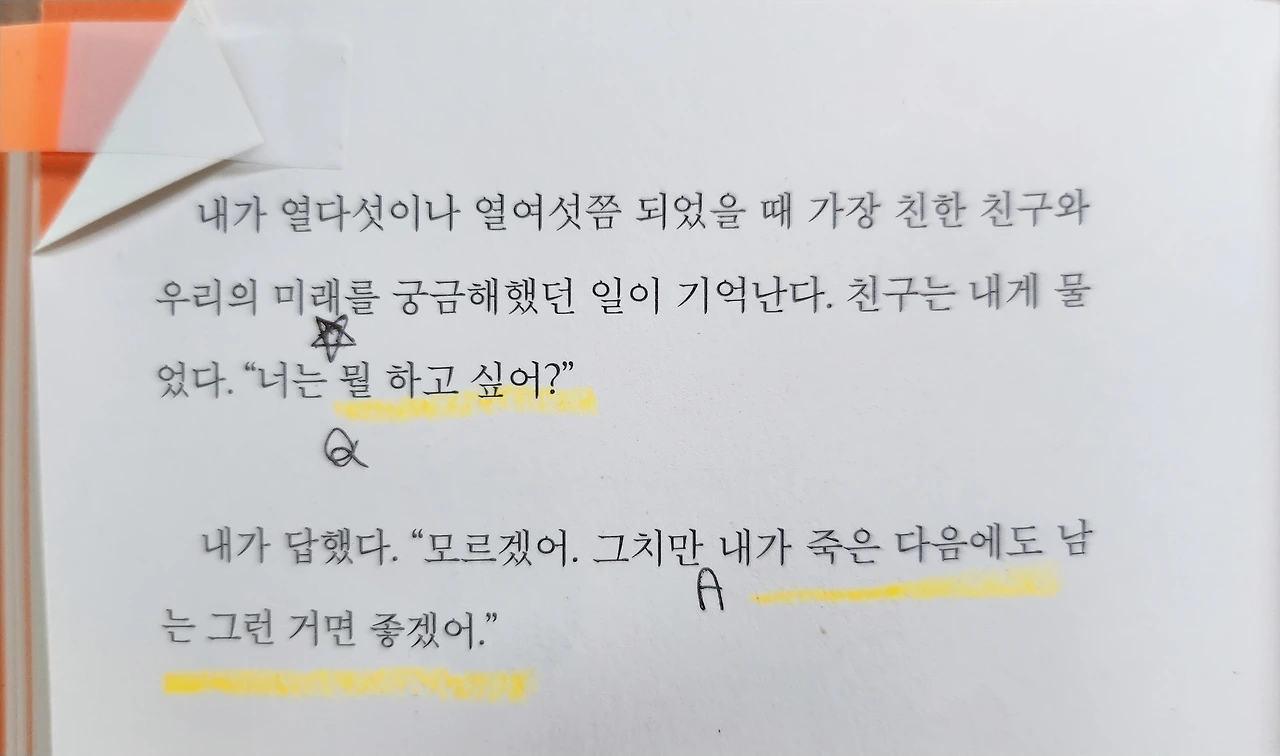 내가 열다섯이나 열여섯쯤 되었을 때 가장 친한 친구와
우리의 미래를 궁금해했던 일이 기억난다. 친구는 내게 물
었다. “너는 뭘 하고 싶어?”
Q
내가 답했다. “모르겠어. 그치만 내가 죽은 다음에도 남
A
는 그런 거면 좋겠어.”